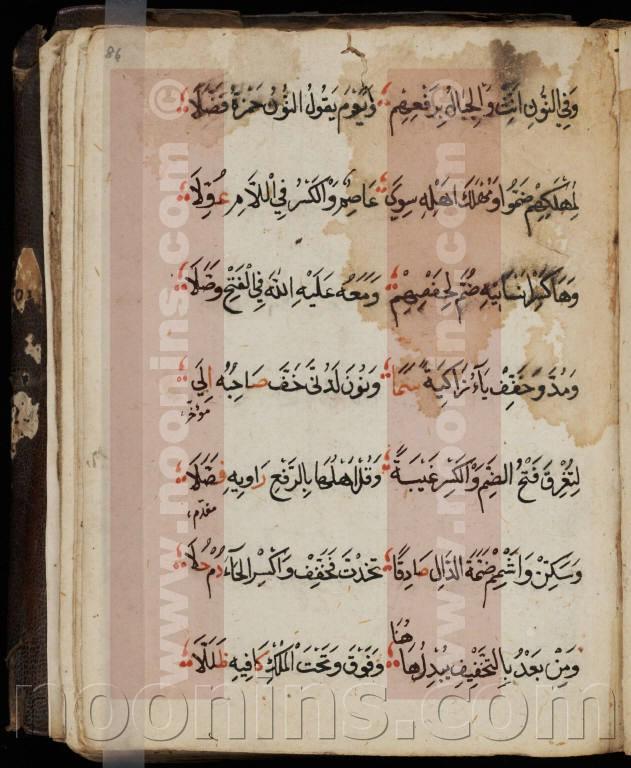 86
وَفِي النُّونِ اَنِّثْ وَالْجِبَالُ بِرَفْعِهِمْ ؛ وَيَوْمَ يَقُولُ النُّونُ حَمْزَةُ فَضَّلَا ؛
لِمَهْلَكِهِمْ ضَمُّوا وَمَهْلَكَ اَهْلِهِ سِوَى ؛ عَاصِمٌ وَالْكَسْرُ فِي اللَّامِ عُوِّلَا ؛
وَهَا كَسْرِ اَنْسَانِيهِ ضُمَّ لِحَفْصِهِمْ ؛ وَمَعْهُ عَلَيْهِ اللهَ فِي الْفَتْحِ وَصَّلَا ؛
وَمُدَّ وَخَفِّفْ يَاءَ زَاكِيَةً سَمَا ؛ وَنُونَ لَدُنِّي خَفَّ صَاحِبُهُ اِلَى ؛
مؤخر
لِتُغْرِقَ فَتْحُ الضَّمِّ وَالْكَسْرِ غَيْبَةً ؛ وَقُلْ اَهْلُهَا بِالرَّفْعِ رَاوِيهِ فَصَّلَا ؛
مقدم
وَسَكِّنْ وَاَشْمِمْ ضَمَّةَ الدَّالِ صَادِقًا ؛ تَخِذْتَ فَخَفِّفْ وَاكْسِرِ الْخَاءَ دُمْ حُلَا ؛
وَمِنْ بَعْدُ بِالتَّخْفِيفِ يُبْدِلُ هَاهُنَا ؛ وَفَوْقَ وَتَحْتَ الْمُلْكِ كَافِيهِ ظَلَّلَا ؛
www.noonins.com
www.noonins.com
noonins.com